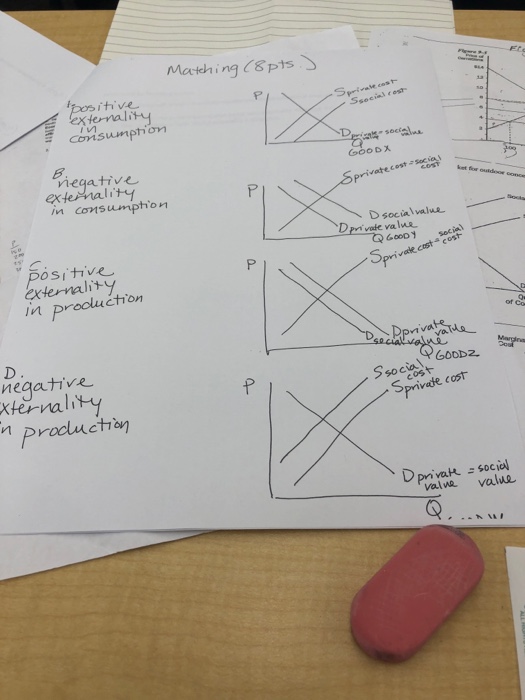 Matching (8pts.)
positive
externality
in
consumption
P
S private cost
S social cost
D private = social
value value
Q
GOOD X
B.
negative
externality
in consumption
P
S private cost = social
cost
D social value
D private value
Q GOOD Y
C
positive
externality
in production
P
S private cost = social
cost
D private
value
D social value
Q GOOD Z
D.
negative
xternality
n production
P
S social
cost
S private cost
D private = social
value value
Q
Figure
ket for outdoor conce
of Co
Margina